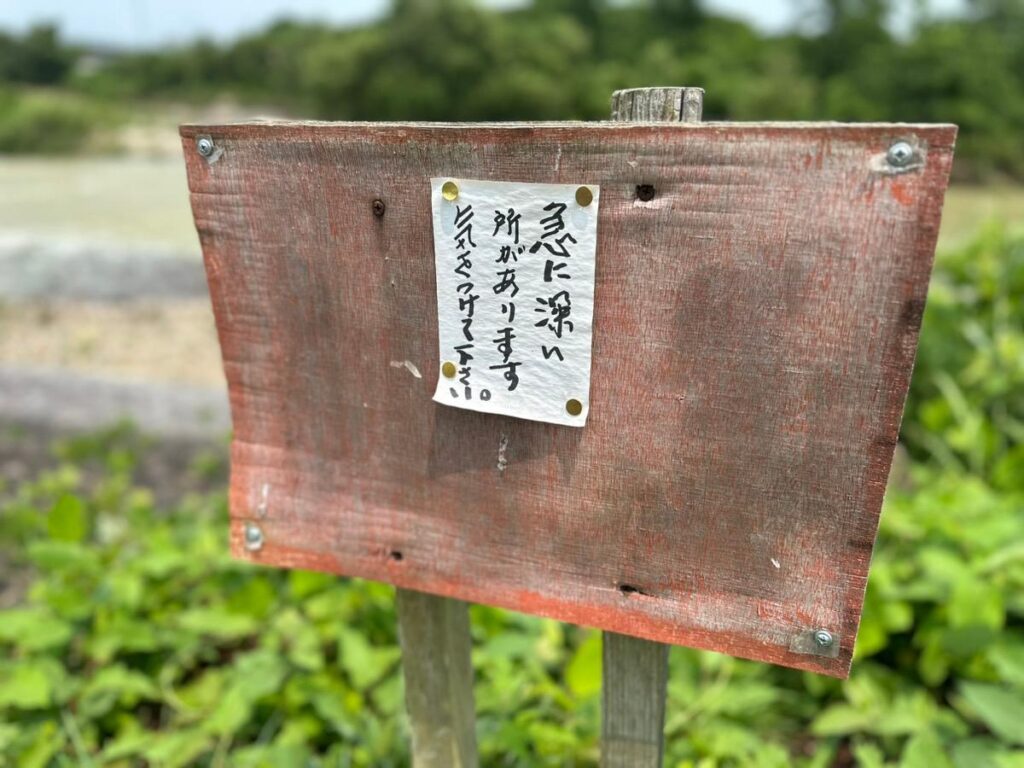 急に深い
所があります
気をつけて下さい。